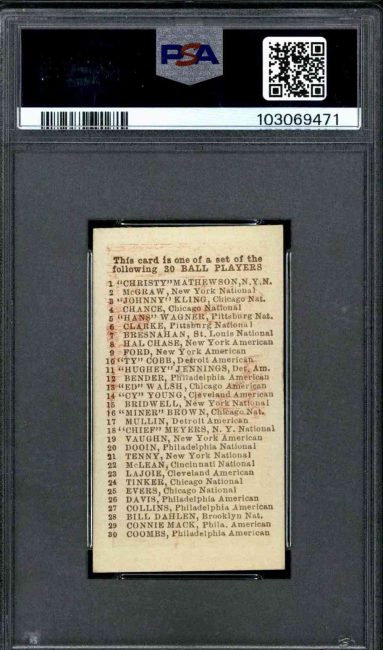 PSA
103069471
This card is one of a set of the
following 30 BALL PLAYERS
1 "CHRISTY" MATHEWSON, N.Y.N.
2 McGRAW, New York National
3 "JOHNNY" KLING, Chicago Nat.
4 CHANCE, Chicago National
5 "HANS" WAGNER, Pittsburg Nat.
6 CLARKE, Pittsburg National
7 BRESNAHAN, St. Louis National
8 HAL CHASE, New York American
9 FORD, New York American
10 "TY" COBB, Detroit American
11 "HUGHEY" JENNINGS, Det. Am.
12 BENDER, Philadelphia American
13 "ED" WALSH, Chicago American
14 "CY" YOUNG, Cleveland American
15 BRIDWELL, New York National
16 "MINER" BROWN, Chicago Nat.
17 MULLIN, Detroit American
18 "CHIEF" MEYERS, N. Y. National
19 VAUGHN, New York American
20 DOOIN, Philadelphia National
21 TENNY, New York National
22 McLEAN, Cincinnati National
23 LAJOIE, Cleveland American
24 TINKER, Chicago National
25 EVERS, Chicago National
26 DAVIS, Philadelphia American
27 COLLINS, Philadelphia American
28 BILL DAHLEN, Brooklyn Nat.
29 CONNIE MACK, Phila. American
30 COOMBS, Philadelphia American